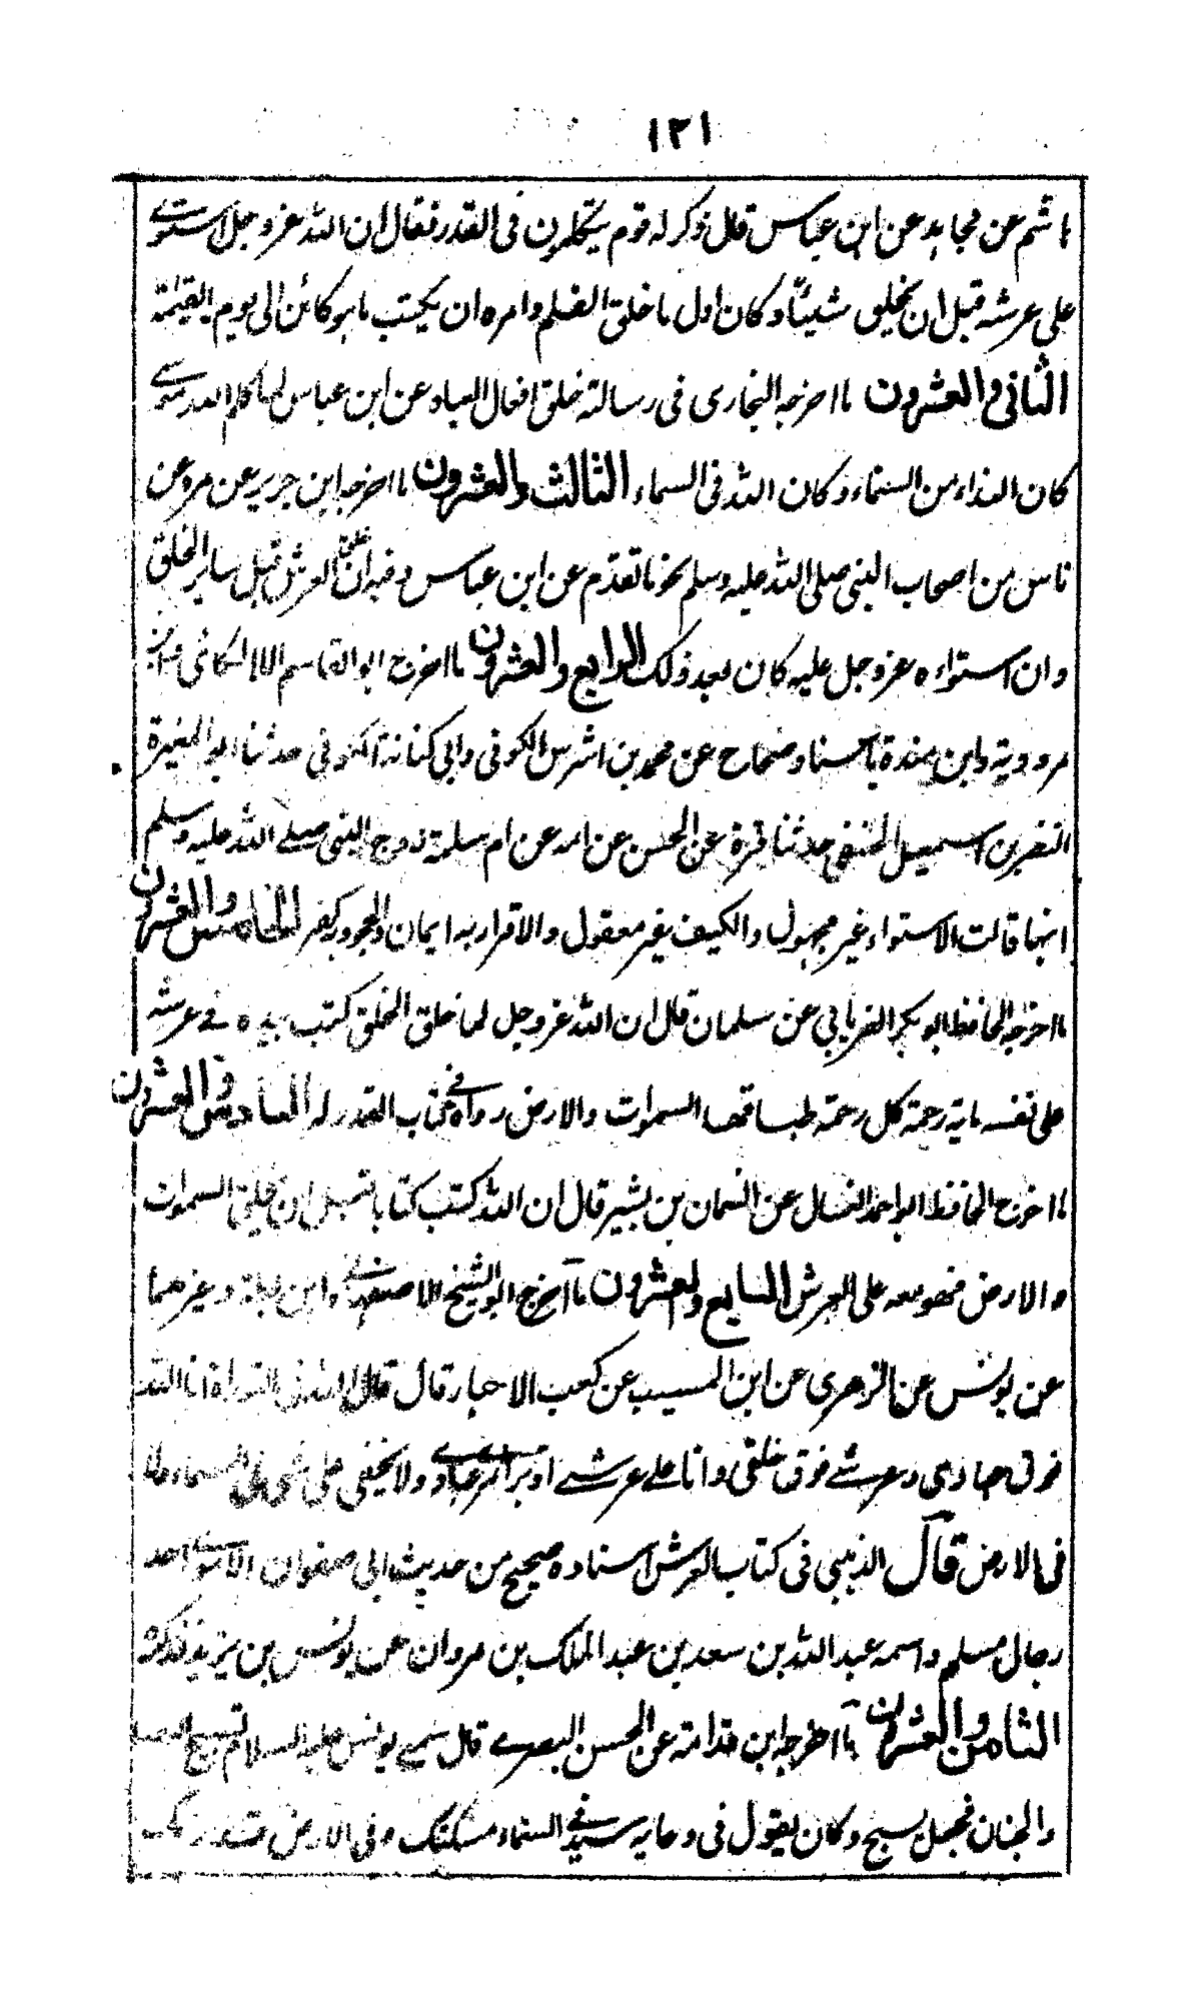 ١٢١
هاشم عن مجاهد عن ابن عباس قال ذكر له قوم يتكلمون فى القدر فقال ان الله عزوجل استوے
على عرشه قبل ان يخلق شيئًا وكان اول ما خلق القلم وامره ان يكتب ما هو كائن الى يوم القيمة
الثانى والعشرون ما اخرجه البخارى فى رسالة خلق افعال العباد عن ابن عباس لما كلم الله موسے
كان النداء من السماء وكان الله فى السماء الثالث والعشرون ما اخرجه ابن جرير عن مرة عن
ناس من اصحاب النبى صلى الله عليه وسلم نحو ما تقدم عن ابن عباس وفيه ان خلق العرش قبل سائر الخلق
وان استواءه عزوجل عليه كان بعد ذلك الرابع والعشرون ما اخرج ابو القاسم الالالكائى وابن
مردوية وابن مندة باسناد صحاح عن محمد بن اشرس الكوفى وابى كنانة الكوفى حدثنا ابو المغيرة
النضر بن اسمعيل الحنفى حدثنا قرة عن الحسن عن امه عن ام سلمة زوج النبى صلے الله عليه وسلم
انها قالت الاستواء غير مجهول والكيف غير معقول والاقرار به ايمان والجحود كفر الخامس والعشرون
ما اخرجه الحافظ ابو بكر الفريابى عن سلمان قال ان الله عزوجل لما خلق الخلق كتب بيده فے عرشه
على نفسه ماية رحمة كل رحمة طباقها السموات والارض رواه فے كتاب القدر له السادس والعشرون
ما اخرج الحافظ ابو احمد العسال عن النعمان بن بشير قال ان الله كتب كتابا قبل ان يخلق السموات
والارض فهو معه على العرش السابع والعشرون ما اخرج ابو الشيخ الاصفهانے وابن بطة وغيرهما
عن يونس عن الزهرى عن ابن المسيب عن كعب الاحبار قال قال الله فى التوراة انا الله
فوق عبادى وعرشے فوق خلقى وانا علے عرشے ادبر امر عبادے ولا يخفى على شئ فى السماء ولا
فى الارض قال الذهبى فى كتاب العرش اسناده صحيح من حديث ابى صفوان الاموے احد
رجال مسلم واسمه عبد الله بن سعد بن عبد الملك بن مروان عن يونس بن يزيد فذكره
الثامن والعشرون ما اخرجه ابن قدامة عن الحسن البصرے قال سمے يونس عليه السلام تسبيح
والحيتان فجعل يسبح وكان يقول فى دعايه سيدے فى السماء مسكنك وفى الارض قدرتك